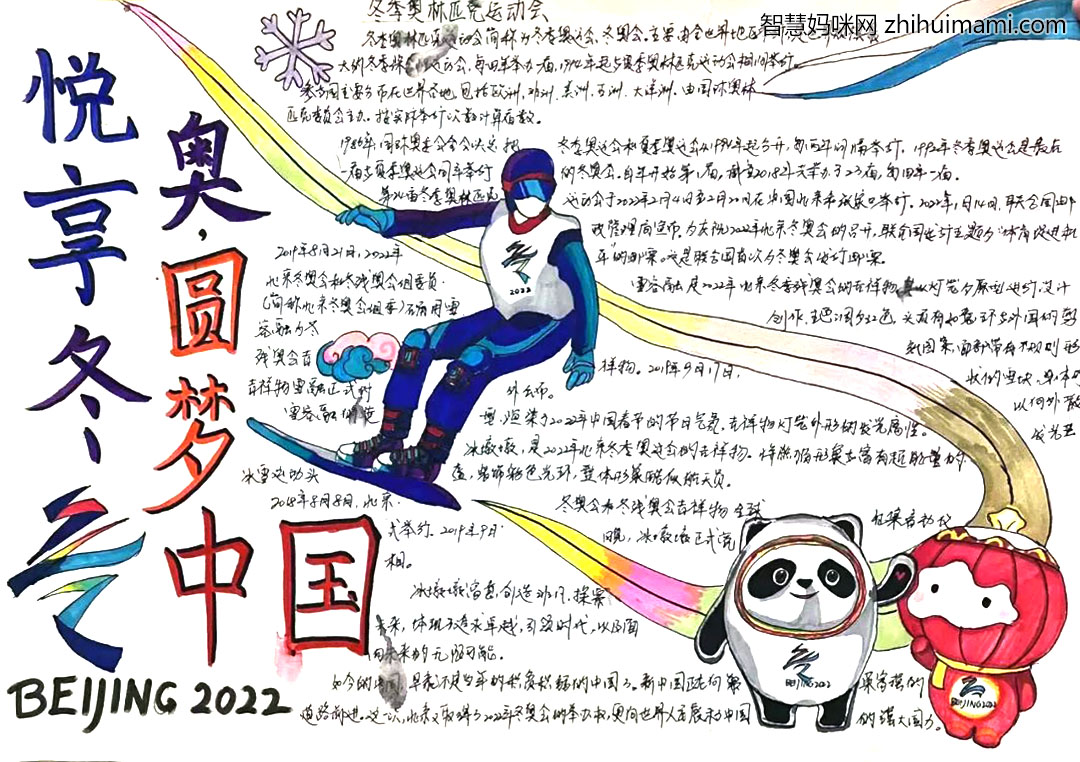 智慧妈咪网 zhihuimami.com
冬季奥林匹克运动会
悦享冬
奥，圆梦中国
冬季奥林匹克运动会简称为冬季奥运会、冬奥会。主要由全世界地区
大的冬季综合性运动会，每四年举办一届，1994年起与夏季奥林匹克运动会相间举行。
参与国主要分布在世界各地，包括欧洲、非洲、美洲、亚洲、大洋洲。由国际奥林
匹克委员会主办。按实际举行次数计算届数。
1986年，国际奥委会全会决定把
一届与夏季奥运会同年举行
第24届冬季奥林匹克
冬季奥运会和夏季奥运会从1994年起分开，每两年间隔举行，1992年冬季奥运会是最后
的冬奥会。自1924年开始第1届，截至2018年共举办了23届，每四年一届。
运动会于2022年2月4日至2月20日在中国北京和张家口举行。2022年1月14日，联合国邮
政管理局宣布，为庆祝2022年北京冬奥会的召开，联合国发行主题为“体育促进和
平”的邮票，这是联合国首次为冬奥会发行邮票。
2019年8月21日，2022年
北京冬奥会和冬残奥会组委员
（简称北京冬奥会组委）
雪容融是2022年北京冬季残奥会的吉祥物，其以灯笼为原型进行设计
创作，主色调为红色，
样物。2019年9月17日，
吉祥物雪容融正式对
外公布。
雪，渲染了2022年中国春节的节日气氛。吉祥物灯笼外形的发光属性。
冰墩墩，是2022年北京冬季奥运会的吉祥物。将熊猫形象与富有超能量的
冰雪运动头
盔，装饰彩色光环，整体形象酷似航天员。
2018年8月8日，北京
冬奥会和冬残奥会吉祥物全球
征集启动仪
式举行。2019年9月
17晚，冰墩墩正式亮
相。
冰墩墩寓意创造非凡、探索
未来，体现了追求卓越，引领时代，以及面
向未来的无限可能。
如今的中国，早就不是当年的积贫积弱的中国了。新中国正向着
道路前进。这一次，北京又取得了2022年冬奥会的举办权，再向世界人民展示了中国
的强大国力。
2022
BEIJING 2022
BEIJING 2022
BEIJING 2022